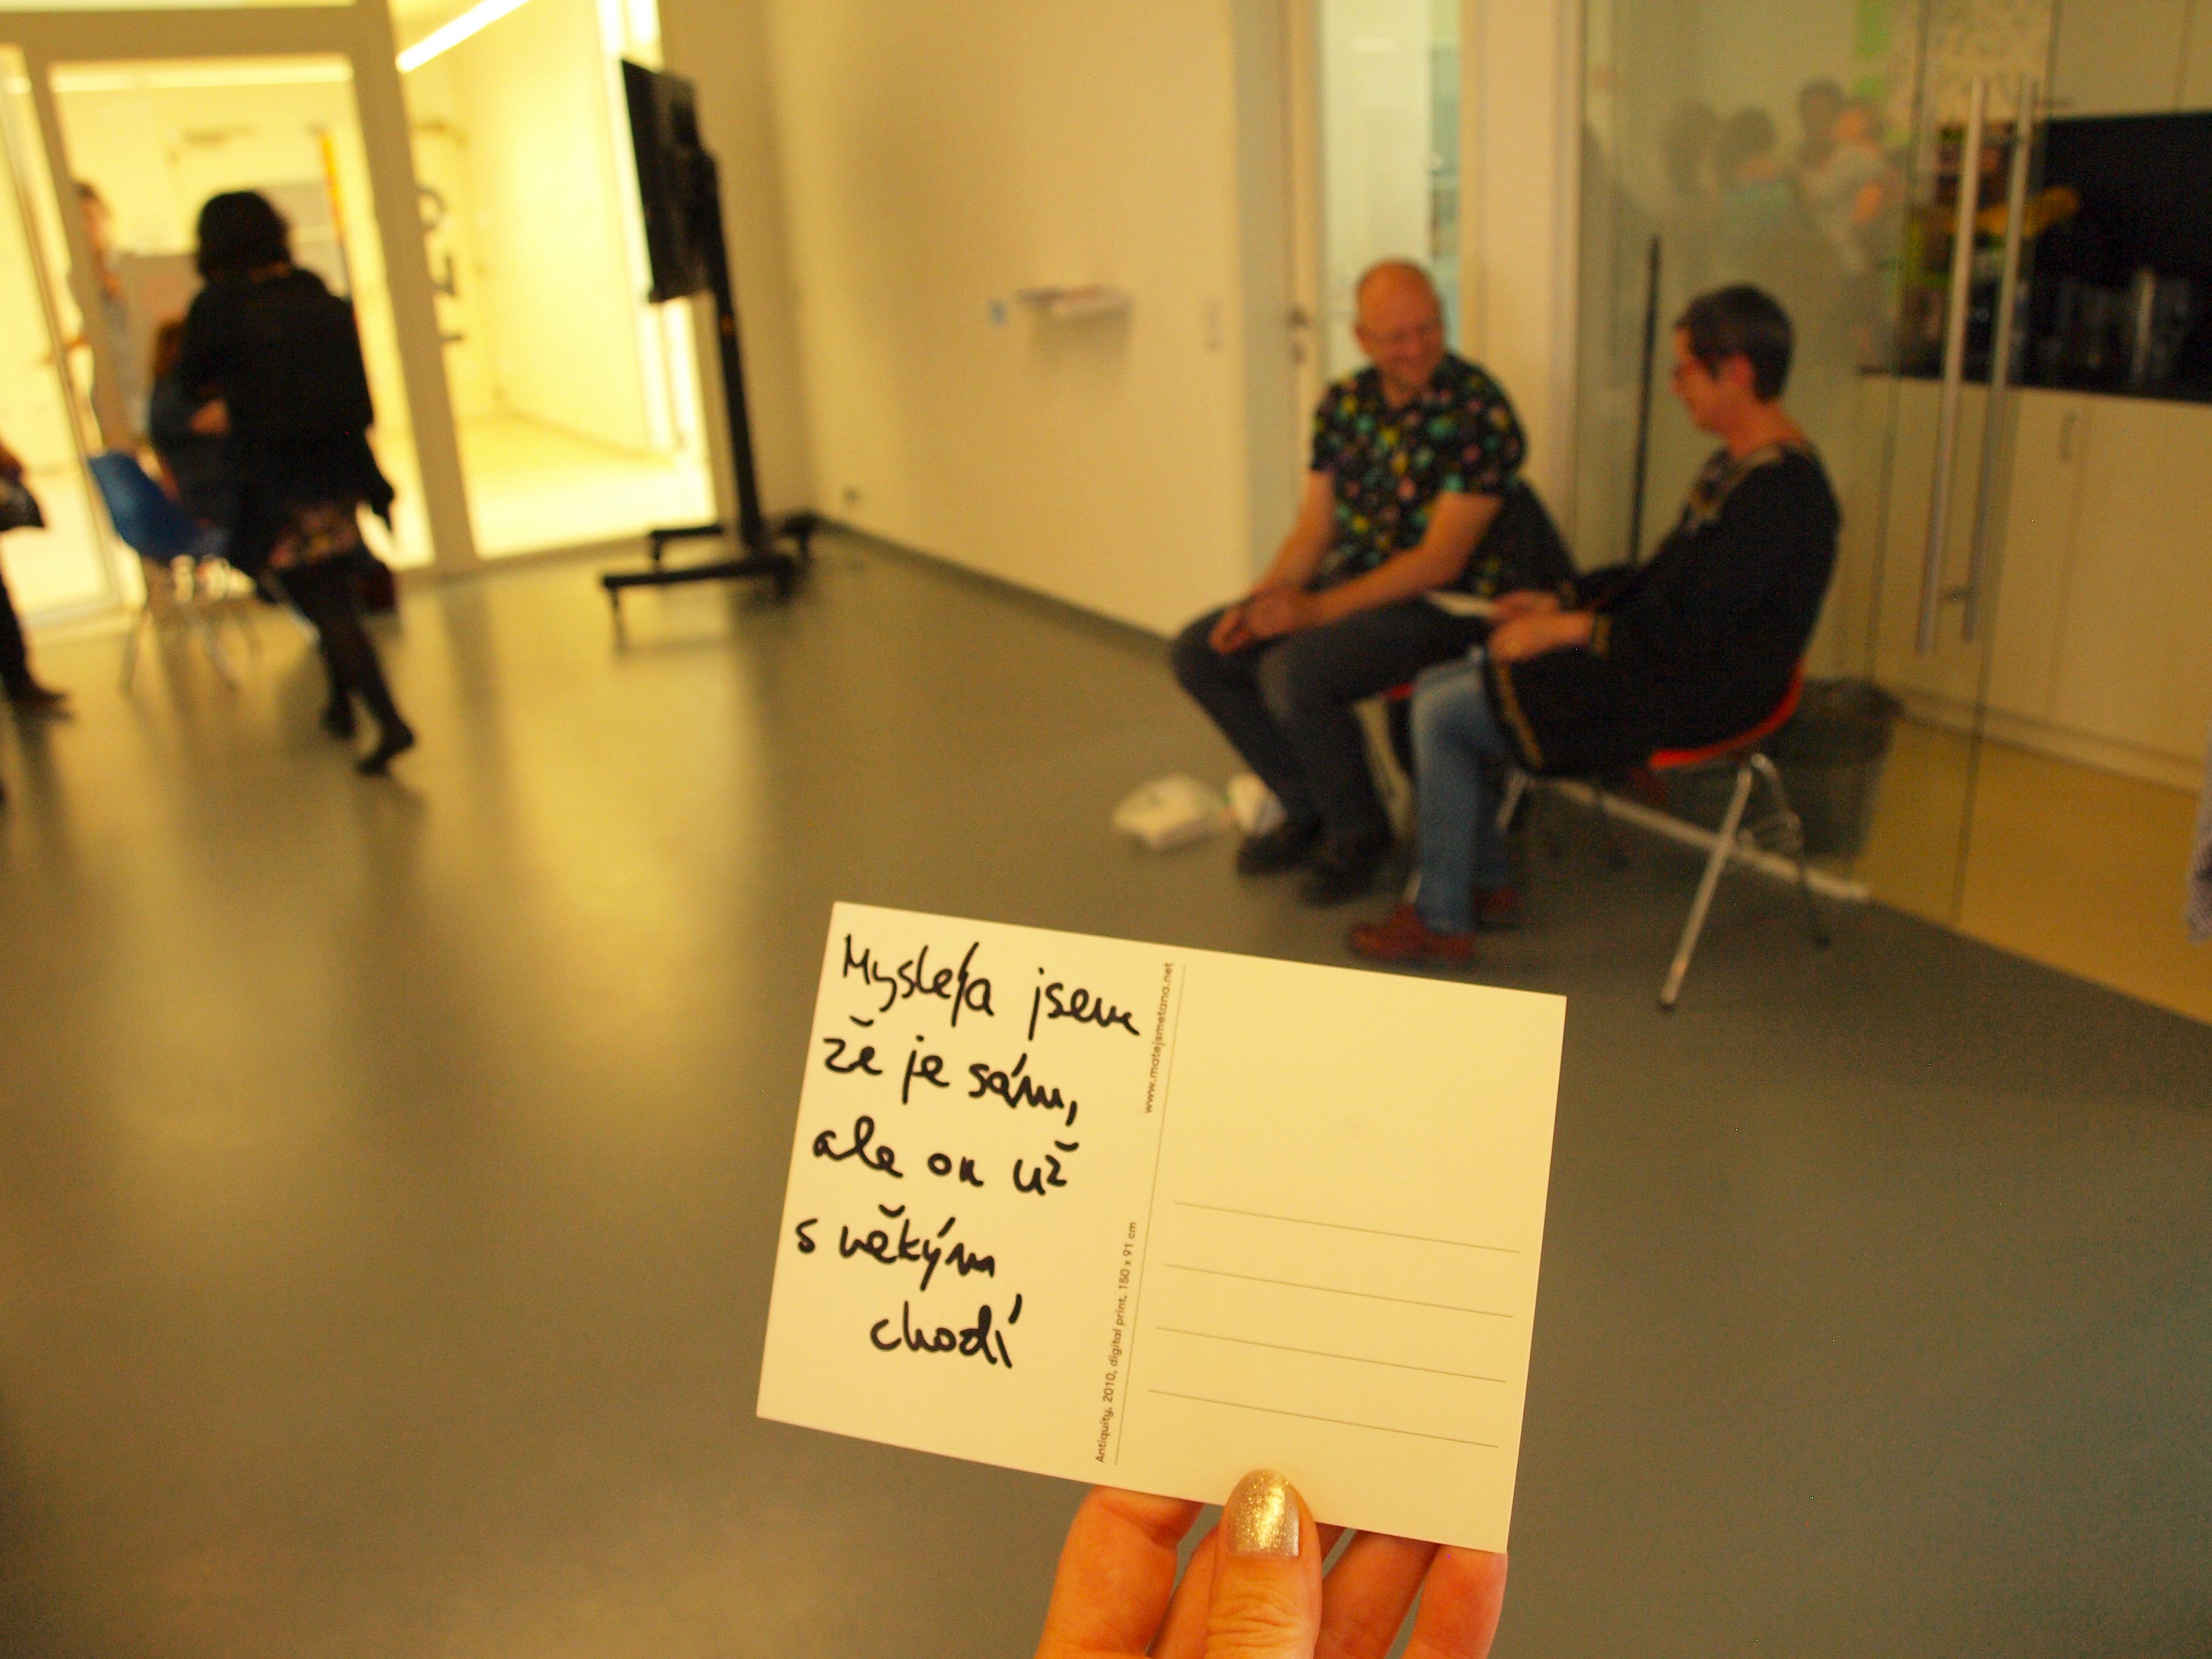 Myslela jsem
že je sám,
ale on už
s někým
chodí
www.matejsmetana.net
Antiquity, 2010, digital print, 150 x 91 cm